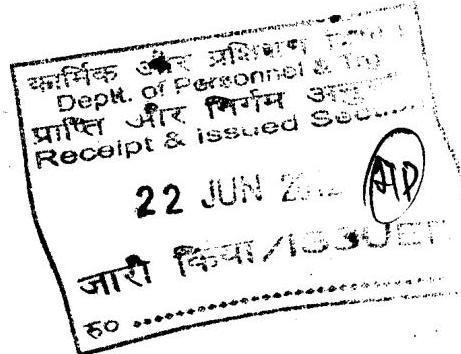 कार्मिक और प्रशिक्षण
Deptt. of Personnel & Trg
प्राप्ति और निर्गम
Receipt & issued
22 JUN
जारी किया/ISSUED
रु० ........................